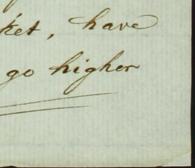 ket, have
go higher